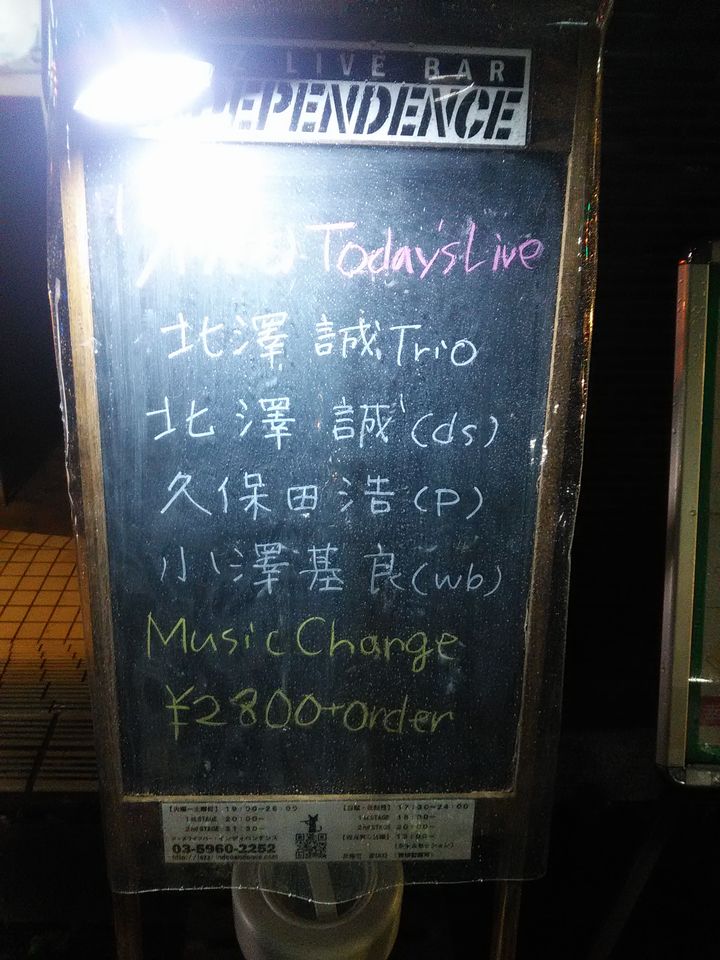 LIVE BAR
INDEPENDENCE
Today'sLive
北澤 誠Trio
北澤 誠(ds)
久保田浩(P)
小澤基良(wb)
MusicChange
¥2800+order
【火曜〜土曜日】19:00〜26:00
1st.STAGE 20:00〜
2nd STAGE 21:30〜
03-5960-2252
17:30〜24:00
1st.STAGE 18:30〜
2nd STAGE 20:00〜